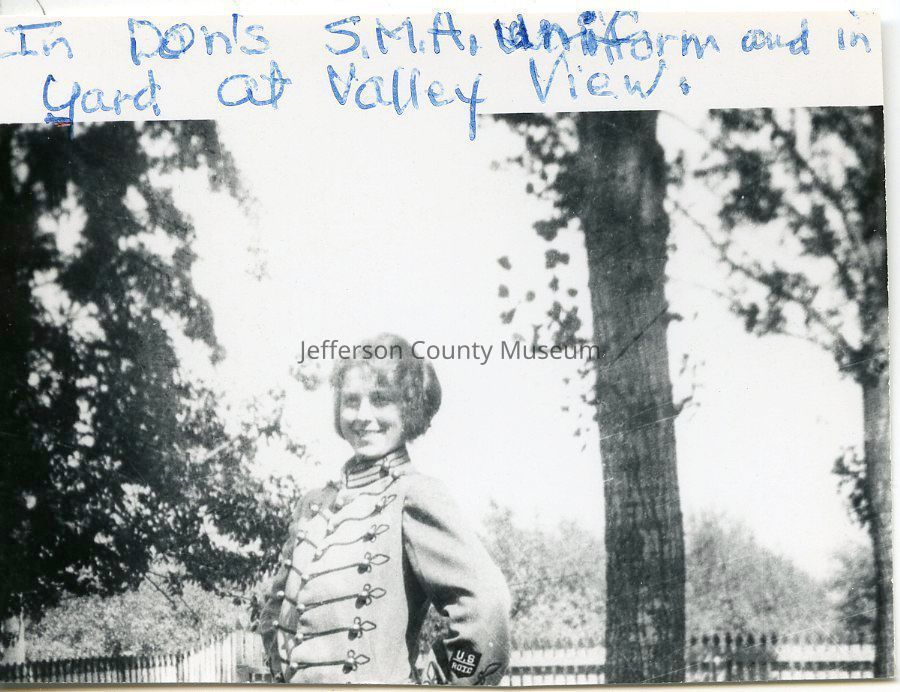 In Don's S.M.A. Uniform and in
yard at Valley View.
Jefferson County Museum
U.S
ROTC